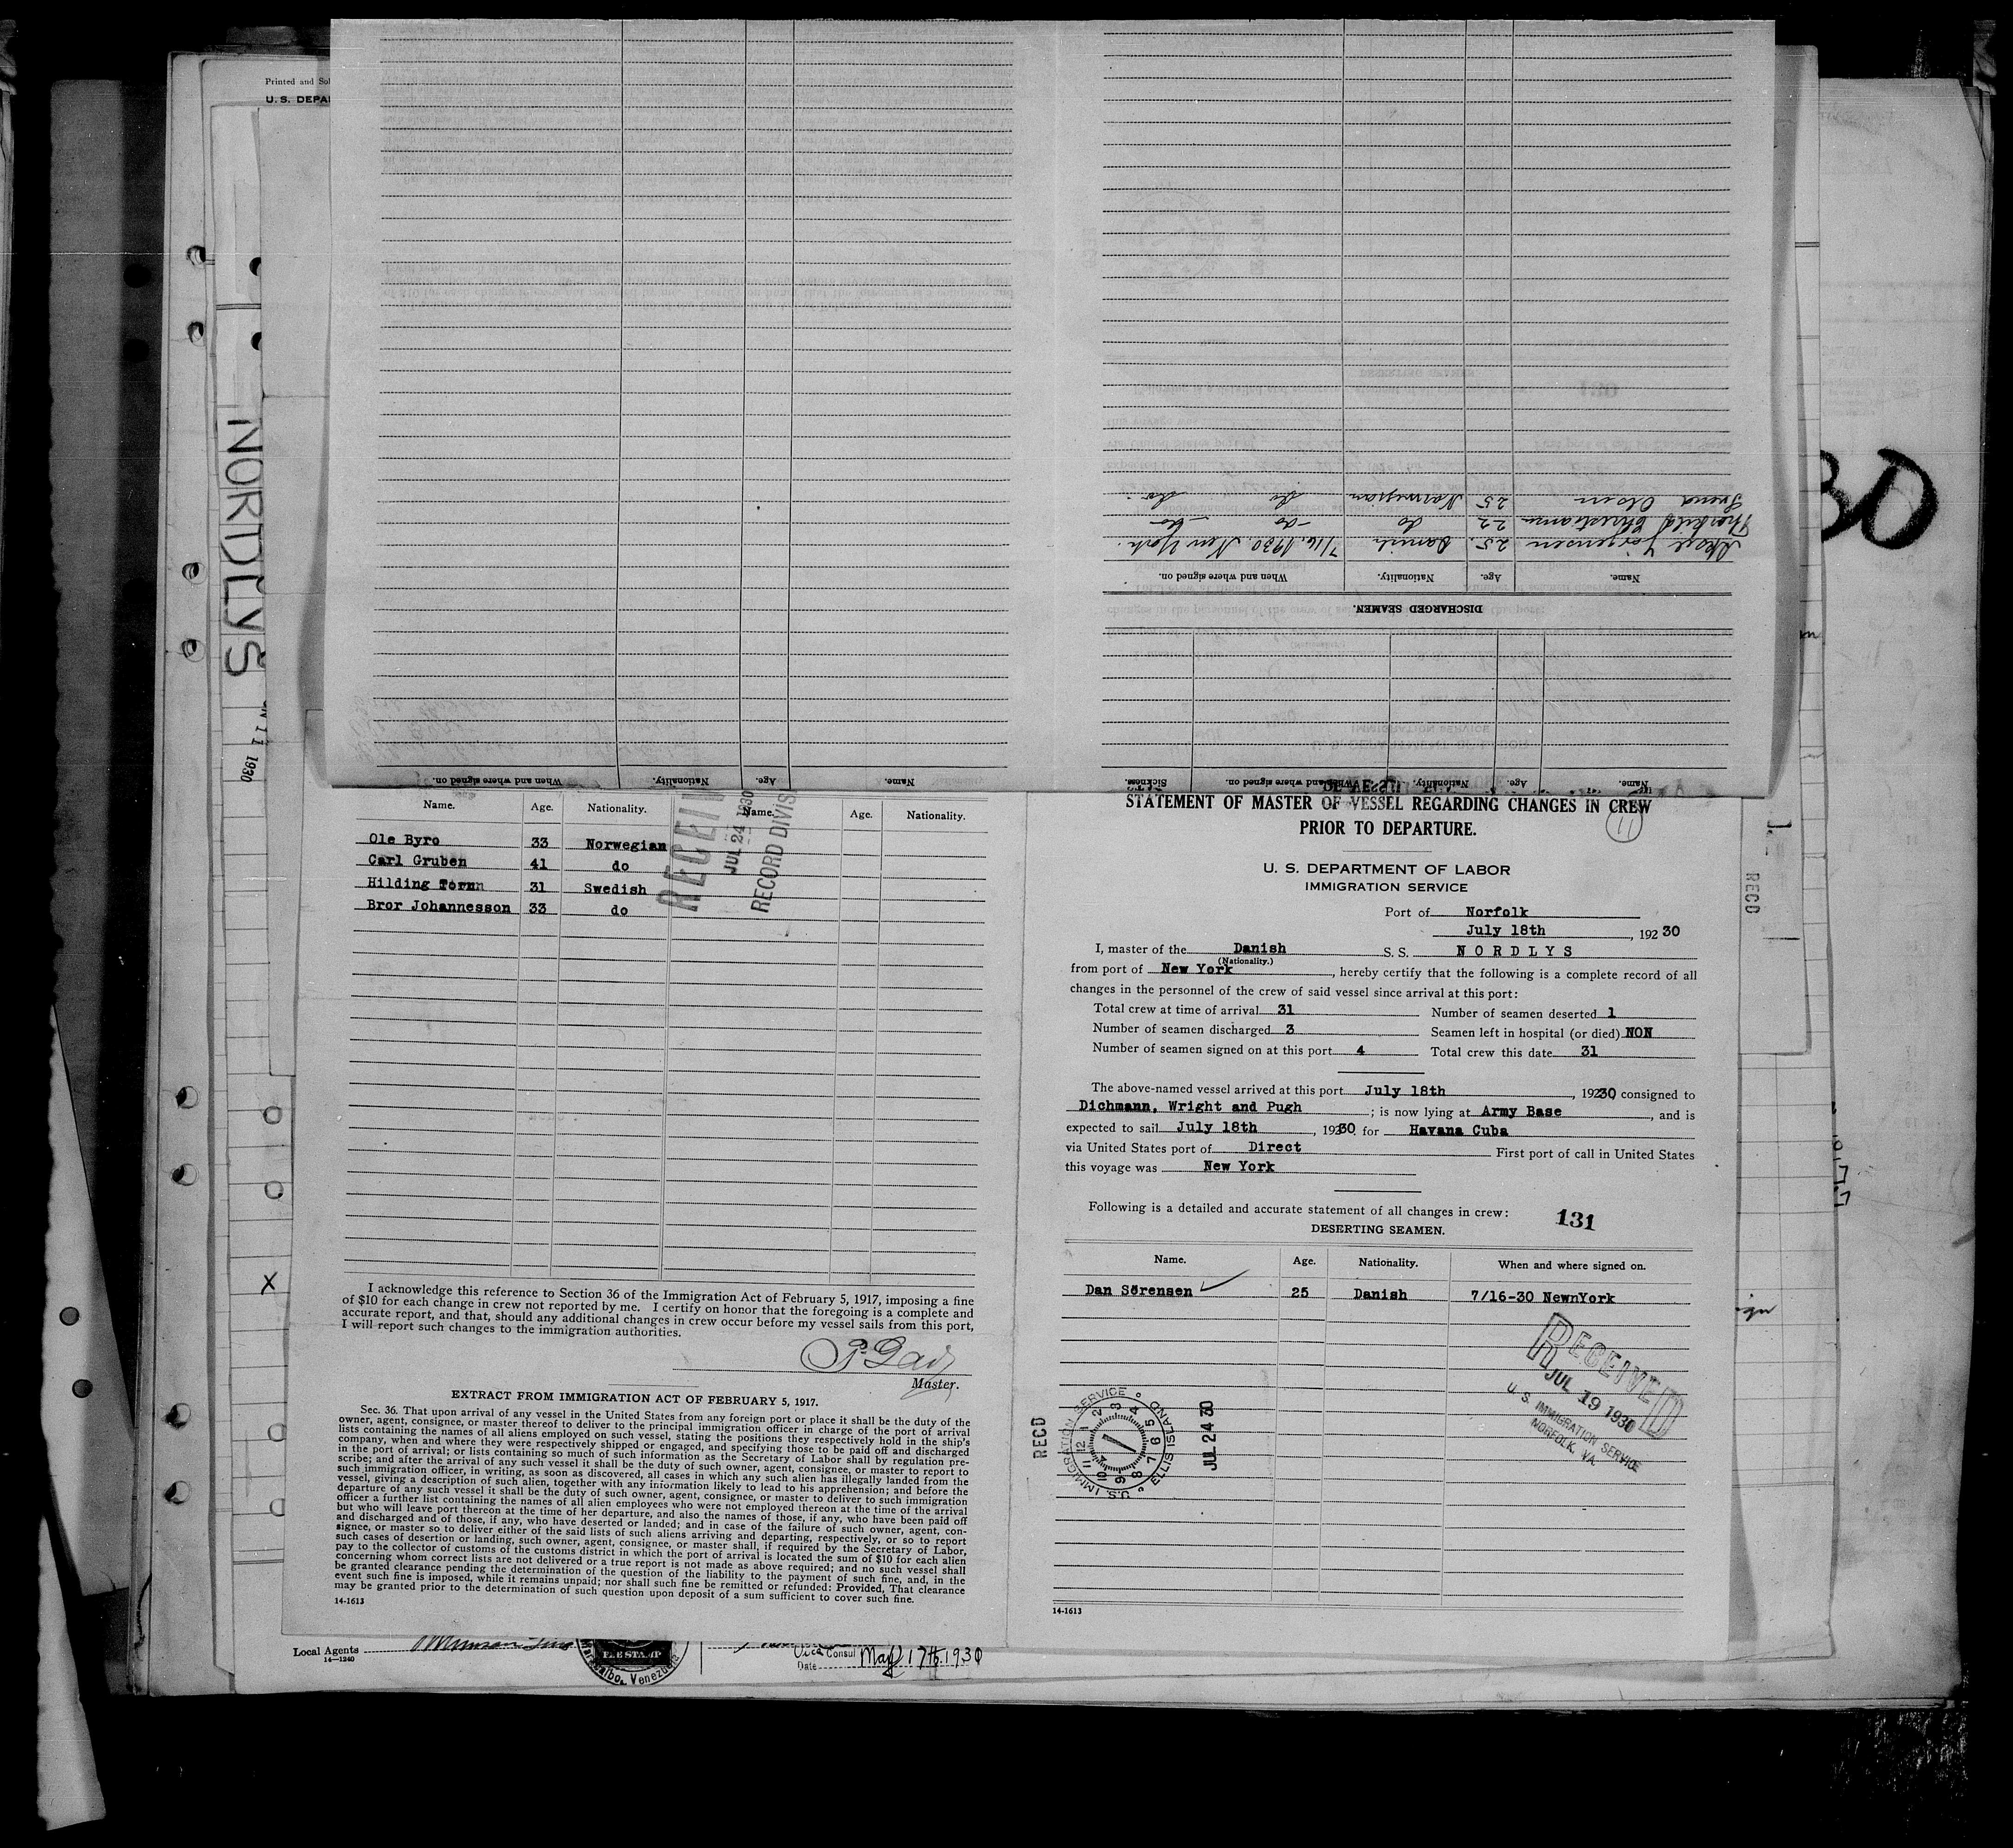 Printed and
U. S. DEPA
NORDLYS
1930
30
Name. Age. Nationality. When and where signed on.
Name. Age. Nationality. When and where signed on. Sickness.
DISCHARGED SEAMEN.
Name. Age. Nationality. When and where signed on.
Jörgensen 25. Danish 7/16. 1930. New York.
Christianen 22 do -do- -do-
Svend Olsen 25 Norwegian do do
Name. Age. Nationality. Name. Age. Nationality.
Ole Byro 33 Norwegian
Carl Gruben 41 do
Hilding 31 Swedish
Bror Johannesson 33 do
JUL 24 1930
RECORD DIVIS
I acknowledge this reference to Section 36 of the Immigration Act of February 5, 1917, imposing a fine
of $10 for each change in crew not reported by me. I certify on honor that the foregoing is a complete and
accurate report, and that, should any additional changes in crew occur before my vessel sails from this port,
I will report such changes to the immigration authorities.
Master.
EXTRACT FROM IMMIGRATION ACT OF FEBRUARY 5, 1917.
Sec. 36. That upon arrival of any vessel in the United States from any foreign port or place it shall be the duty of the
owner, agent, consignee, or master thereof to deliver to the principal immigration officer in charge of the port of arrival
lists containing the names of all aliens employed on such vessel, stating the positions they respectively hold in the ship's
company, when and where they were respectively shipped or engaged, and specifying those to be paid off and discharged
in the port of arrival; or lists containing so much of such information as the Secretary of Labor shall by regulation pre-
scribe; and after the arrival of any such vessel it shall be the duty of such owner, agent, consignee, or master to report to
such immigration officer, in writing, as soon as discovered, all cases in which any such alien has illegally landed from the
vessel, giving a description of such alien, together with any information likely to lead to his apprehension; and before the
departure of any such vessel it shall be the duty of such owner, agent, consignee, or master to deliver to such immigration
officer a further list containing the names of all alien employees who were not employed thereon at the time of the arrival
but who will leave port thereon at the time of her departure, and also the names of those, if any, who have been paid off
and discharged and of those, if any, who have deserted or landed; and in case of the failure of such owner, agent, con-
signee, or master so to deliver either of the said lists of such aliens arriving and departing, respectively, or so to report
such cases of desertion or landing, such owner, agent, consignee, or master shall, if required by the Secretary of Labor,
pay to the collector of customs of the customs district in which the port of arrival is located the sum of $10 for each alien
concerning whom correct lists are not delivered or a true report is not made as above required; and no such vessel shall
be granted clearance pending the determination of the question of the liability to the payment of such fine, and, in the
event such fine is imposed, while it remains unpaid; nor shall such fine be remitted or refunded: Provided, That clearance
may be granted prior to the determination of such question upon deposit of a sum sufficient to cover such fine.
14-1613
Local Agents
14—1240
Maracaibo, Venezuela
Vice Consul
Date May 17th.1930
STATEMENT OF MASTER OF VESSEL REGARDING CHANGES IN CREW
PRIOR TO DEPARTURE.
11
U. S. DEPARTMENT OF LABOR
IMMIGRATION SERVICE
Port of Norfolk
July 18th, 192 30
I, master of the Danish S. S. NORDLYS
(Nationality.)
from port of New York, hereby certify that the following is a complete record of all
changes in the personnel of the crew of said vessel since arrival at this port:
Total crew at time of arrival 31 Number of seamen deserted 1
Number of seamen discharged 3 Seamen left in hospital (or died) NON
Number of seamen signed on at this port 4 Total crew this date 31
The above-named vessel arrived at this port July 18th, 19230, consigned to
Dichmann, Wright and Pugh; is now lying at Army Base, and is
expected to sail July 18th, 19230. for Havana Cuba
via United States port of Direct First port of call in United States
this voyage was New York
Following is a detailed and accurate statement of all changes in crew: 131
DESERTING SEAMEN.
Name. Age. Nationality. When and where signed on.
Dan Sörensen 25 Danish 7/16-30 NewnYork
RECEIVED
JUL 19 1930
U. S. IMMIGRATION SERVICE
NORFOLK, VA.
RECD
U.S. IMMIGRATION SERVICE ELLIS ISLAND
JUL 24 30
14-1613
RECD